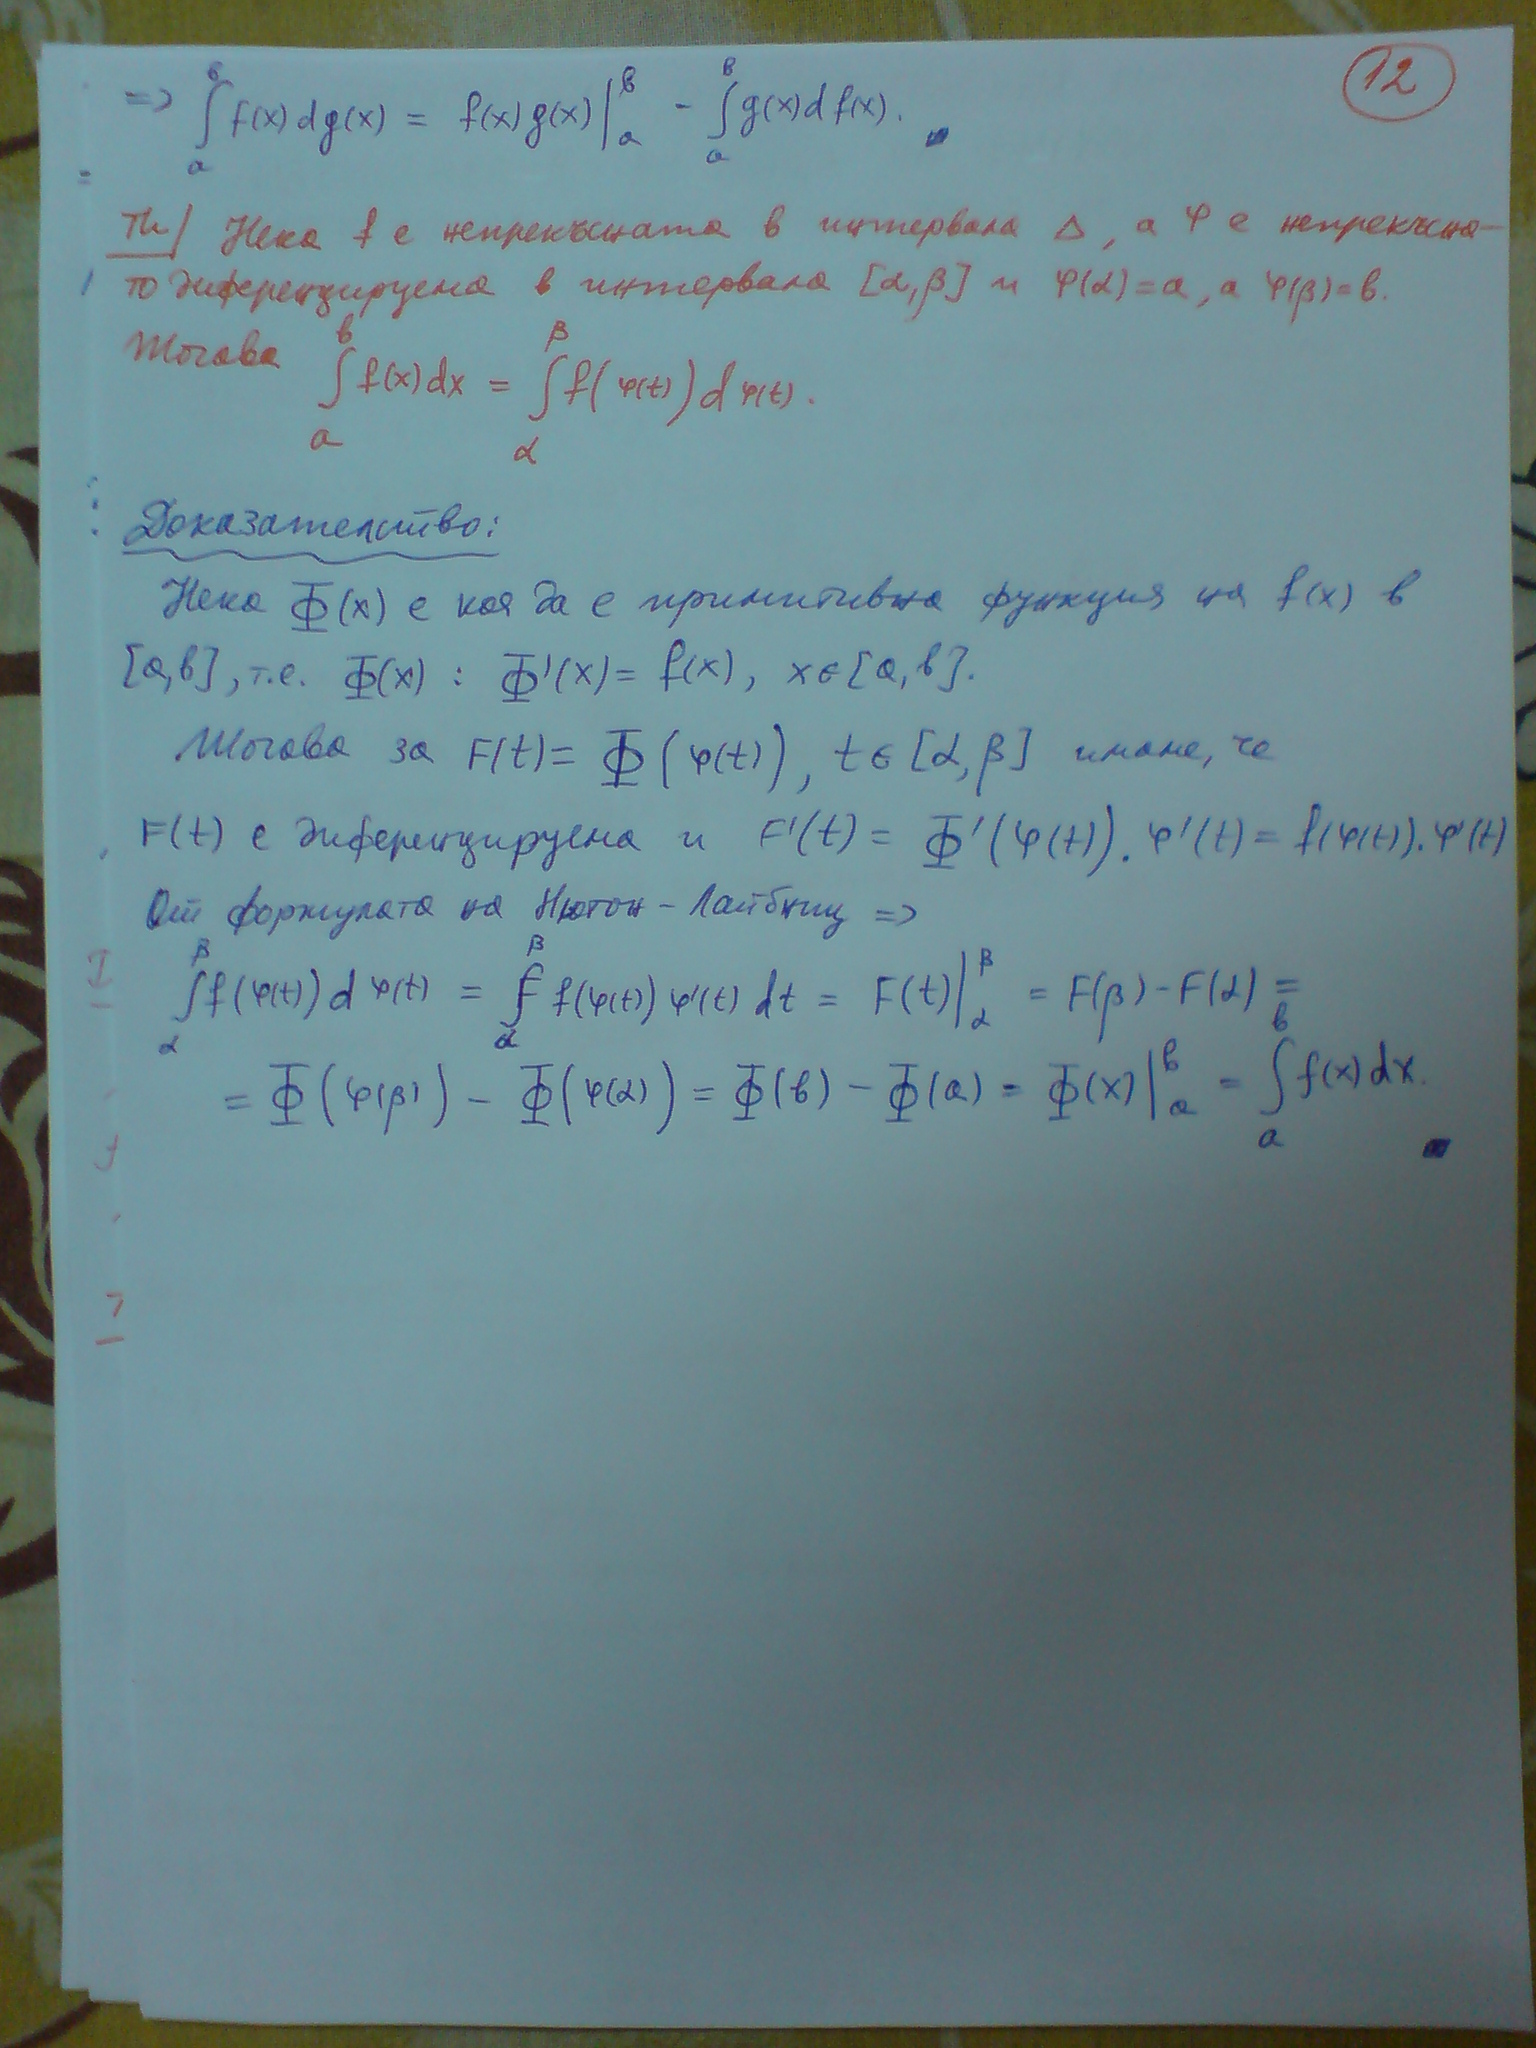 12
=> ∫ₐᵇ f(x) dg(x) = f(x)g(x)|ₐᵇ - ∫ₐᵇ g(x)d f(x).
Th/ Нека f е непрекъсната в интервала Δ, а φ е непрекъсна-
то диференцируема в интервала [α,β] и φ(α)=a, а φ(β)=b.
Тогава ∫ₐᵇ f(x)dx = ∫_α^β f(φ(t))dφ(t).
Доказателство:
Нека Φ(x) е коя да е примитивна функция на f(x) в
[a,b], т.е. Φ(x) : Φ'(x)= f(x), x∈[a,b].
Тогава за F(t)= Φ(φ(t)), t∈[α,β] имаме, че
F(t) е диференцируема и F'(t) = Φ'(φ(t)).φ'(t)= f(φ(t)).φ'(t)
От формулата на Нютон-Лайбниц =>
∫_α^β f(φ(t))dφ(t) = ∫_α^β f(φ(t))φ'(t)dt = F(t)|_α^β = F(β)-F(α) =
= Φ(φ(β)) - Φ(φ(α)) = Φ(b) - Φ(a) = Φ(x)|ₐᵇ = ∫ₐᵇ f(x)dx.